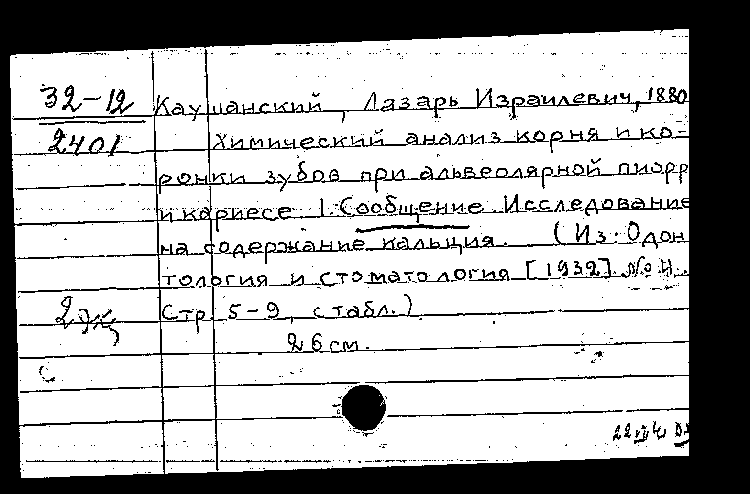 32-12
2401
Каушанский, Лазарь Израилевич, 1880
Химический анализ корня и ко-
ронки зубов при альвеолярной пиорр
и кариесе 1. Сообщение Исследование
на содержание кальция. (Из: Одон
тология и стоматология [1932]. № 4.
Стр. 5-9, с табл.)
2 эк
26 см.